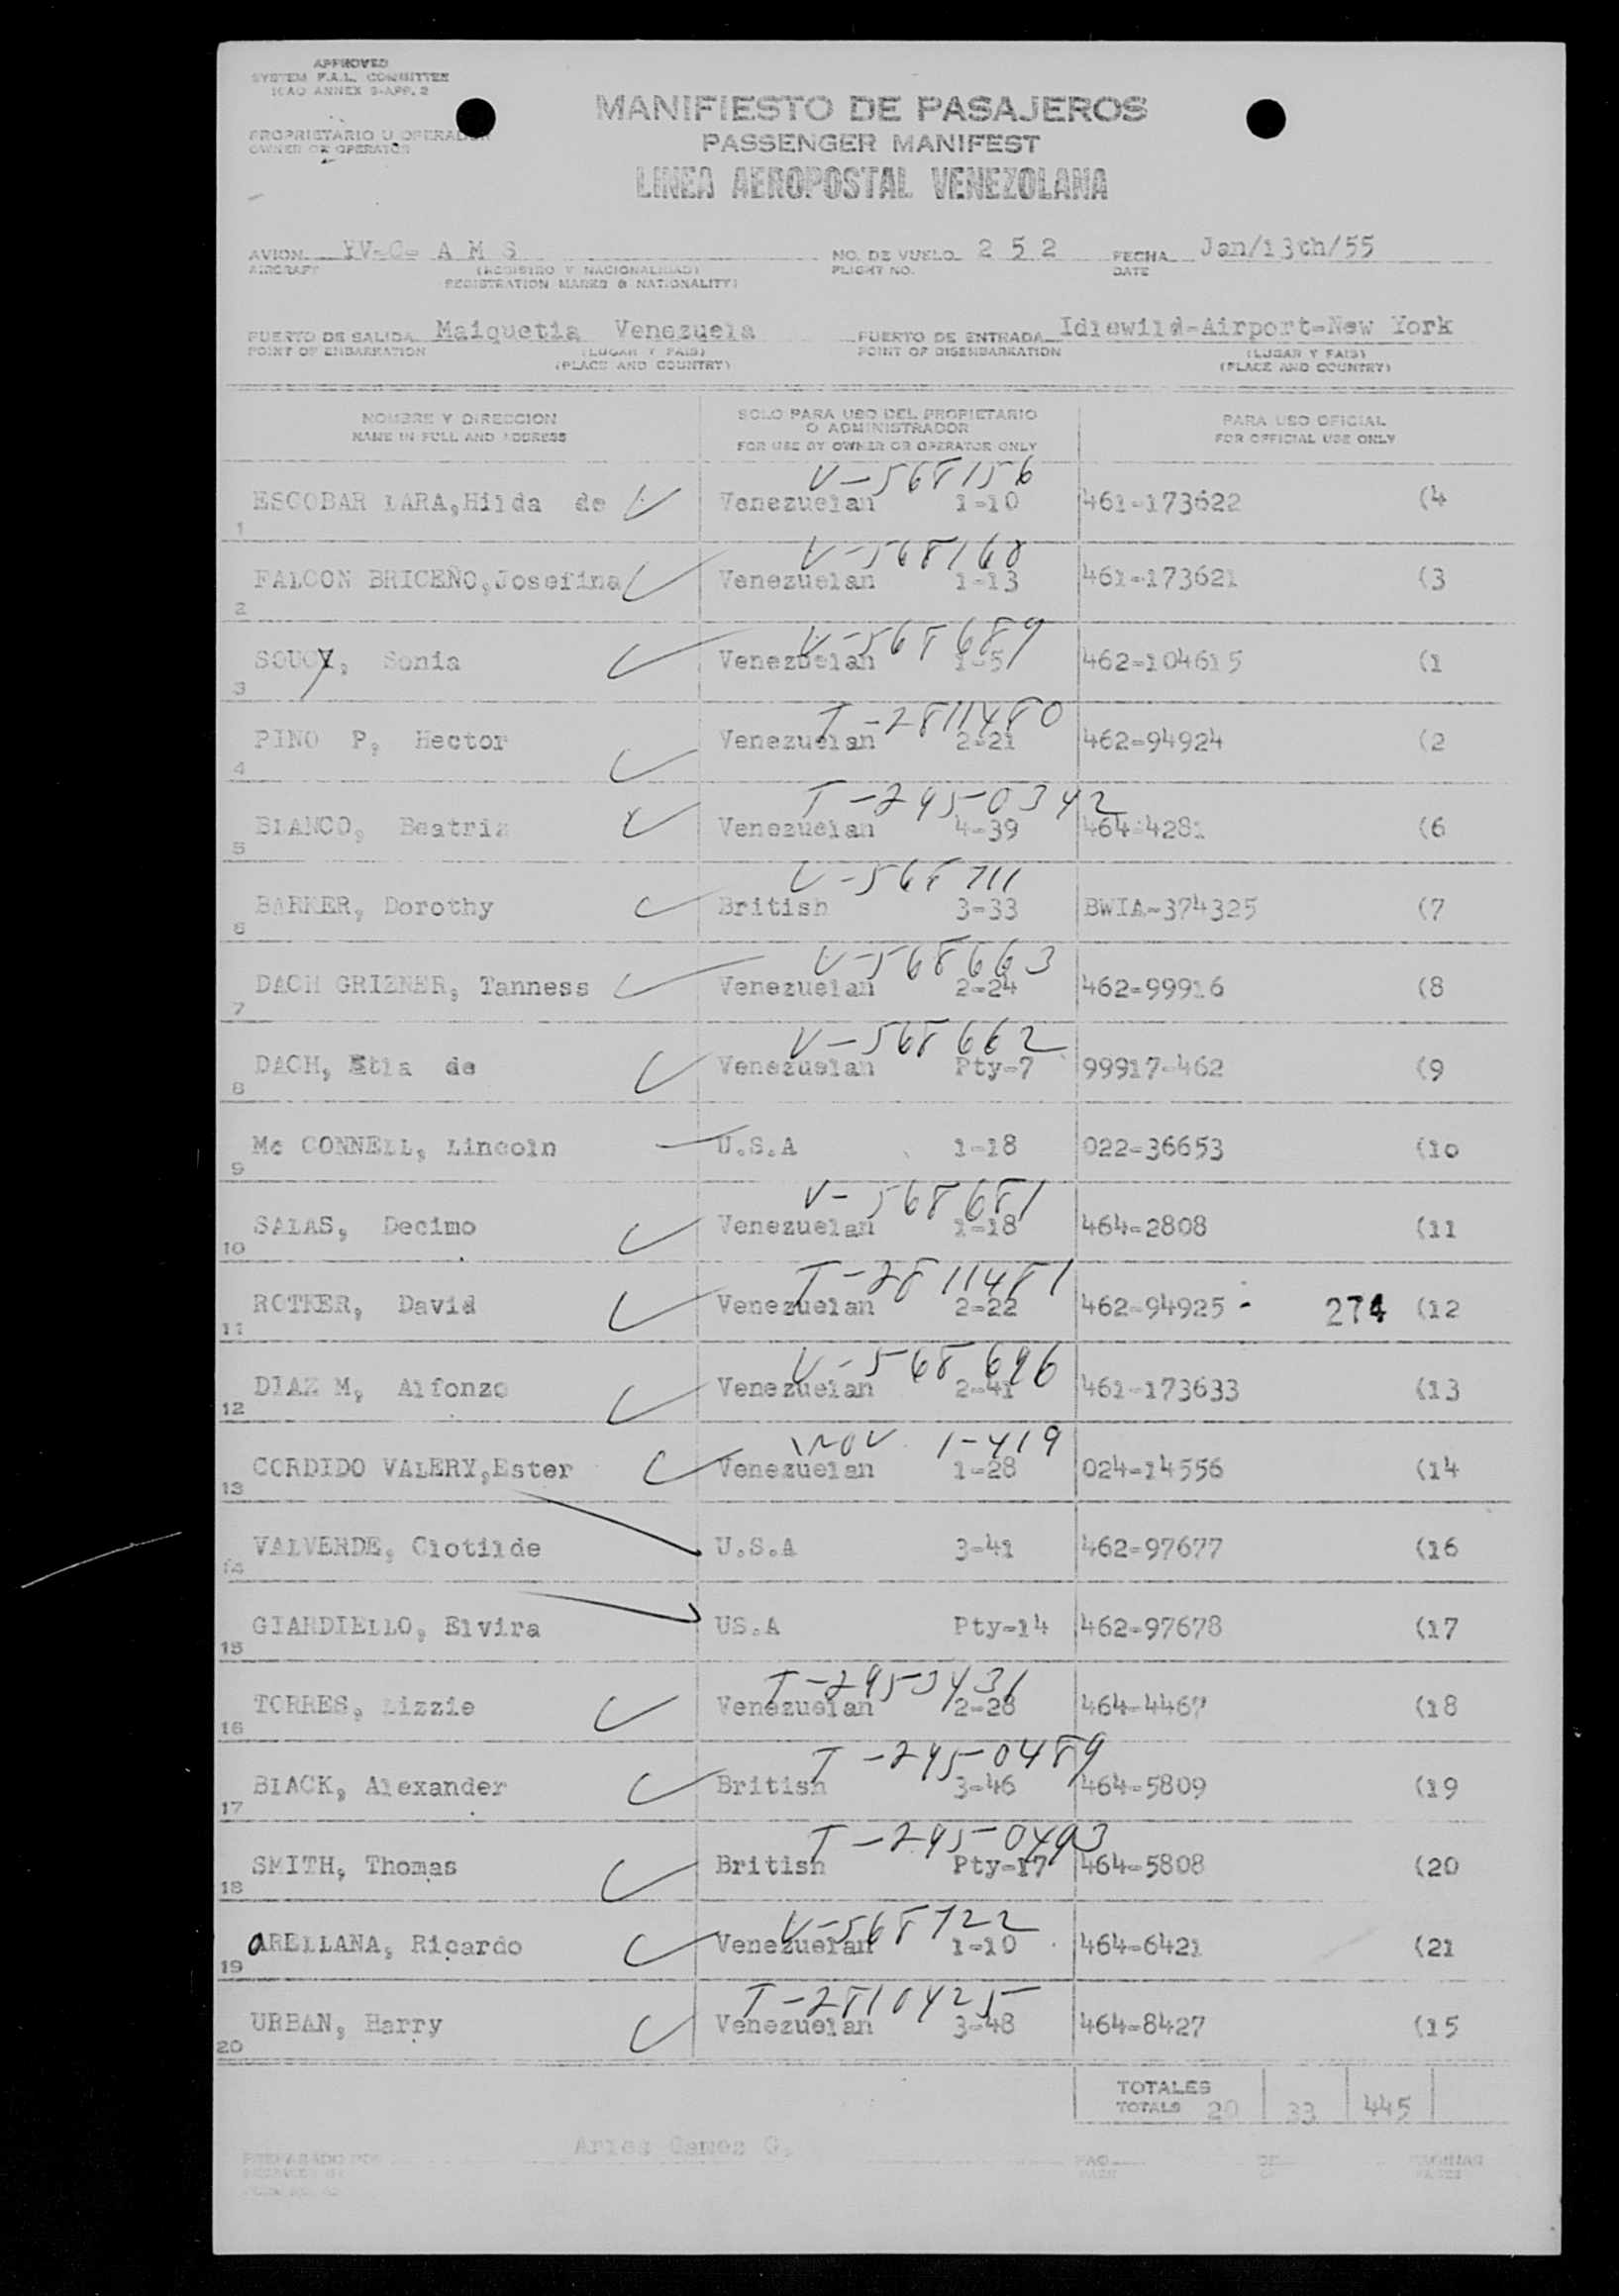 APPROVED
SYSTEM F.A.L. COMMITTEE
ICAO ANNEX 9-APP. 2
PROPRIETARIO U OPERADOR
OWNER OR OPERATOR
MANIFIESTO DE PASAJEROS
PASSENGER MANIFEST
LINEA AEROPOSTAL VENEZOLANA
AVION YV-C- A M S NO. DE VUELO 2 5 2 FECHA Jan/13th/55
AIRCRAFT (REGISTRO Y NACIONALIDAD) FLIGHT NO. DATE
REGISTRATION MARKS & NATIONALITY)
PUERTO DE SALIDA Maiquetia Venezuela PUERTO DE ENTRADA Idlewild-Airport-New York
POINT OF EMBARKATION (LUGAR Y PAIS) POINT OF DISEMBARKATION (LUGAR Y PAIS)
(PLACE AND COUNTRY) (PLACE AND COUNTRY)
NOMBRE Y DIRECCION
NAME IN FULL AND ADDRESS
SOLO PARA USO DEL PROPIETARIO
O ADMINISTRADOR
FOR USE BY OWNER OR OPERATOR ONLY
PARA USO OFICIAL
FOR OFFICIAL USE ONLY
V-568156
1 ESCOBAR LARA,Hilda de Venezuelan 1-10 461-173622 (4
V-568168
2 FALCON BRICEÑO,Josefina Venezuelan 1-13 461-173621 (3
V-568689
3 SOUCY, Sonia Venezuelan 1-5 462-104615 (1
T-2811480
4 PINO P, Hector Venezuelan 2-21 462-94924 (2
T-2950342
5 BLANCO, Beatriz Venezuelan 4-39 464-4281 (6
V-568711
6 BARKER, Dorothy British 3-33 BWIA-374325 (7
V-568663
7 DACH GRIENER, Tanness Venezuelan 2-24 462-99916 (8
V-568662
8 DACH, Etla de Venezuelan Pty-7 99917-462 (9
9 Mc CONNELL, Lincoln U.S.A 1-18 022-36653 (10
V-568681
10 SALAS, Decimo Venezuelan 1-18 464-2808 (11
T-2811481
11 ROTKER, David Venezuelan 2-22 462-94925 - 274 (12
V-568696
12 DIAZ M, Alfonzo Venezuelan 2-41 461-173633 (13
1-419
13 CORDIDO VALERY,Ester Venezuelan 1-28 024-14556 (14
14 VALVERDE, Clotilde U.S.A 3-41 462-97677 (16
15 GIARDIELLO, Elvira US.A Pty-14 462-97678 (17
T-2953431
16 TORRES, Lizzie Venezuelan 2-28 464-4467 (18
T-2950489
17 BLACK, Alexander British 3-46 464-5809 (19
T-2950493
18 SMITH, Thomas British Pty-17 464-5808 (20
V-568722
19 ARELLANA, Ricardo Venezuelan 1-10 464-6421 (21
T-2810425
20 URBAN, Harry Venezuelan 3-48 464-8427 (15
TOTALES
TOTALS 20 33 445
Aries Gamez G.
PREPARADO POR PAG. DE PAGINAS